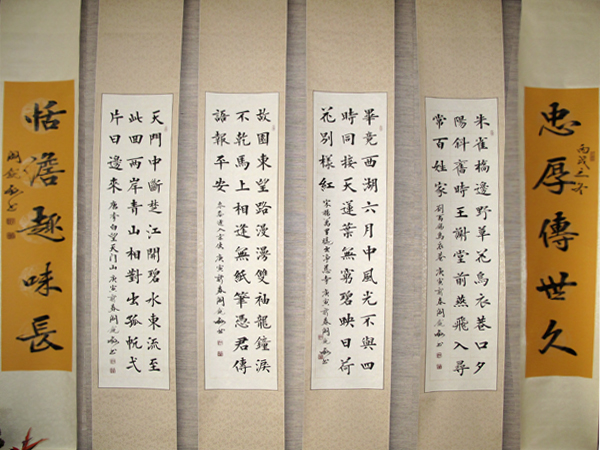 忠厚傳世久
丙戌立冬
朱雀橋邊野草花烏衣巷口夕
陽斜舊時王謝堂前燕飛入尋
常百姓家 劉禹錫烏衣巷 庚寅前春
畢竟西湖六月中風光不與四
時同接天蓮葉無窮碧映日荷
花別樣紅 宋楊萬里曉出淨慈寺 庚寅前春
故園東望路漫漫雙袖龍鐘淚
不乾馬上相逢無紙筆憑君傳
語報平安 岑參逢入京使 庚寅前春
天門中斷楚江開碧水東流至
此回兩岸青山相對出孤帆弌
片日邊來 唐李白望天門山 庚寅前春
恬澹趣味長